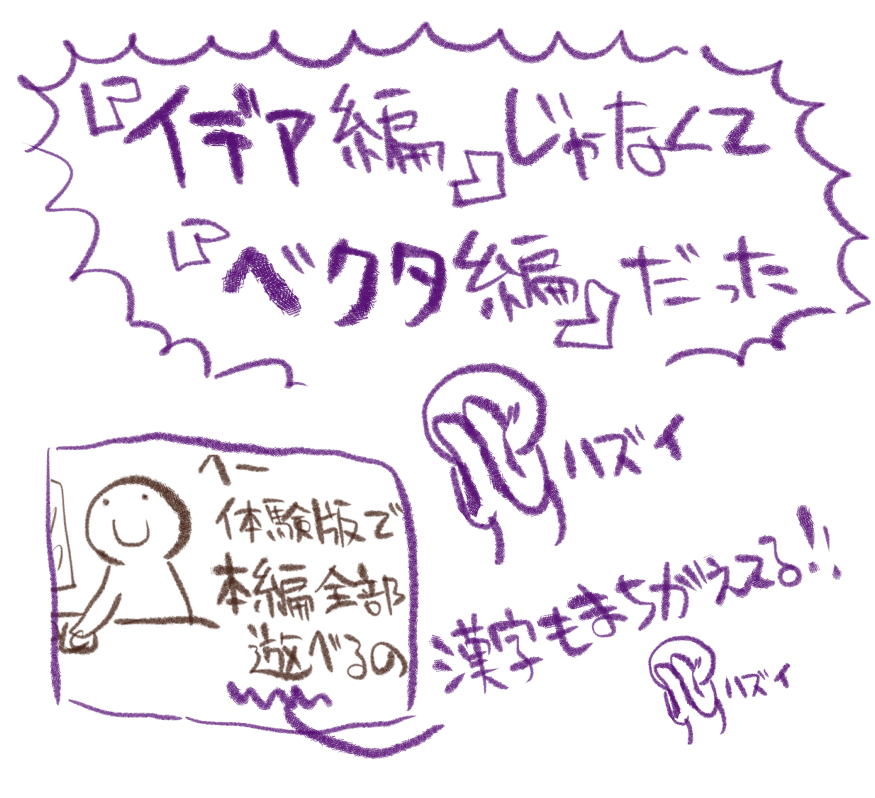 『イデア編』じゃなくて
『ベクタ編』だった
ハズイ
へー
体験版で
本編全部
遊べるの
漢字もまちがえてる!!
ハズイ